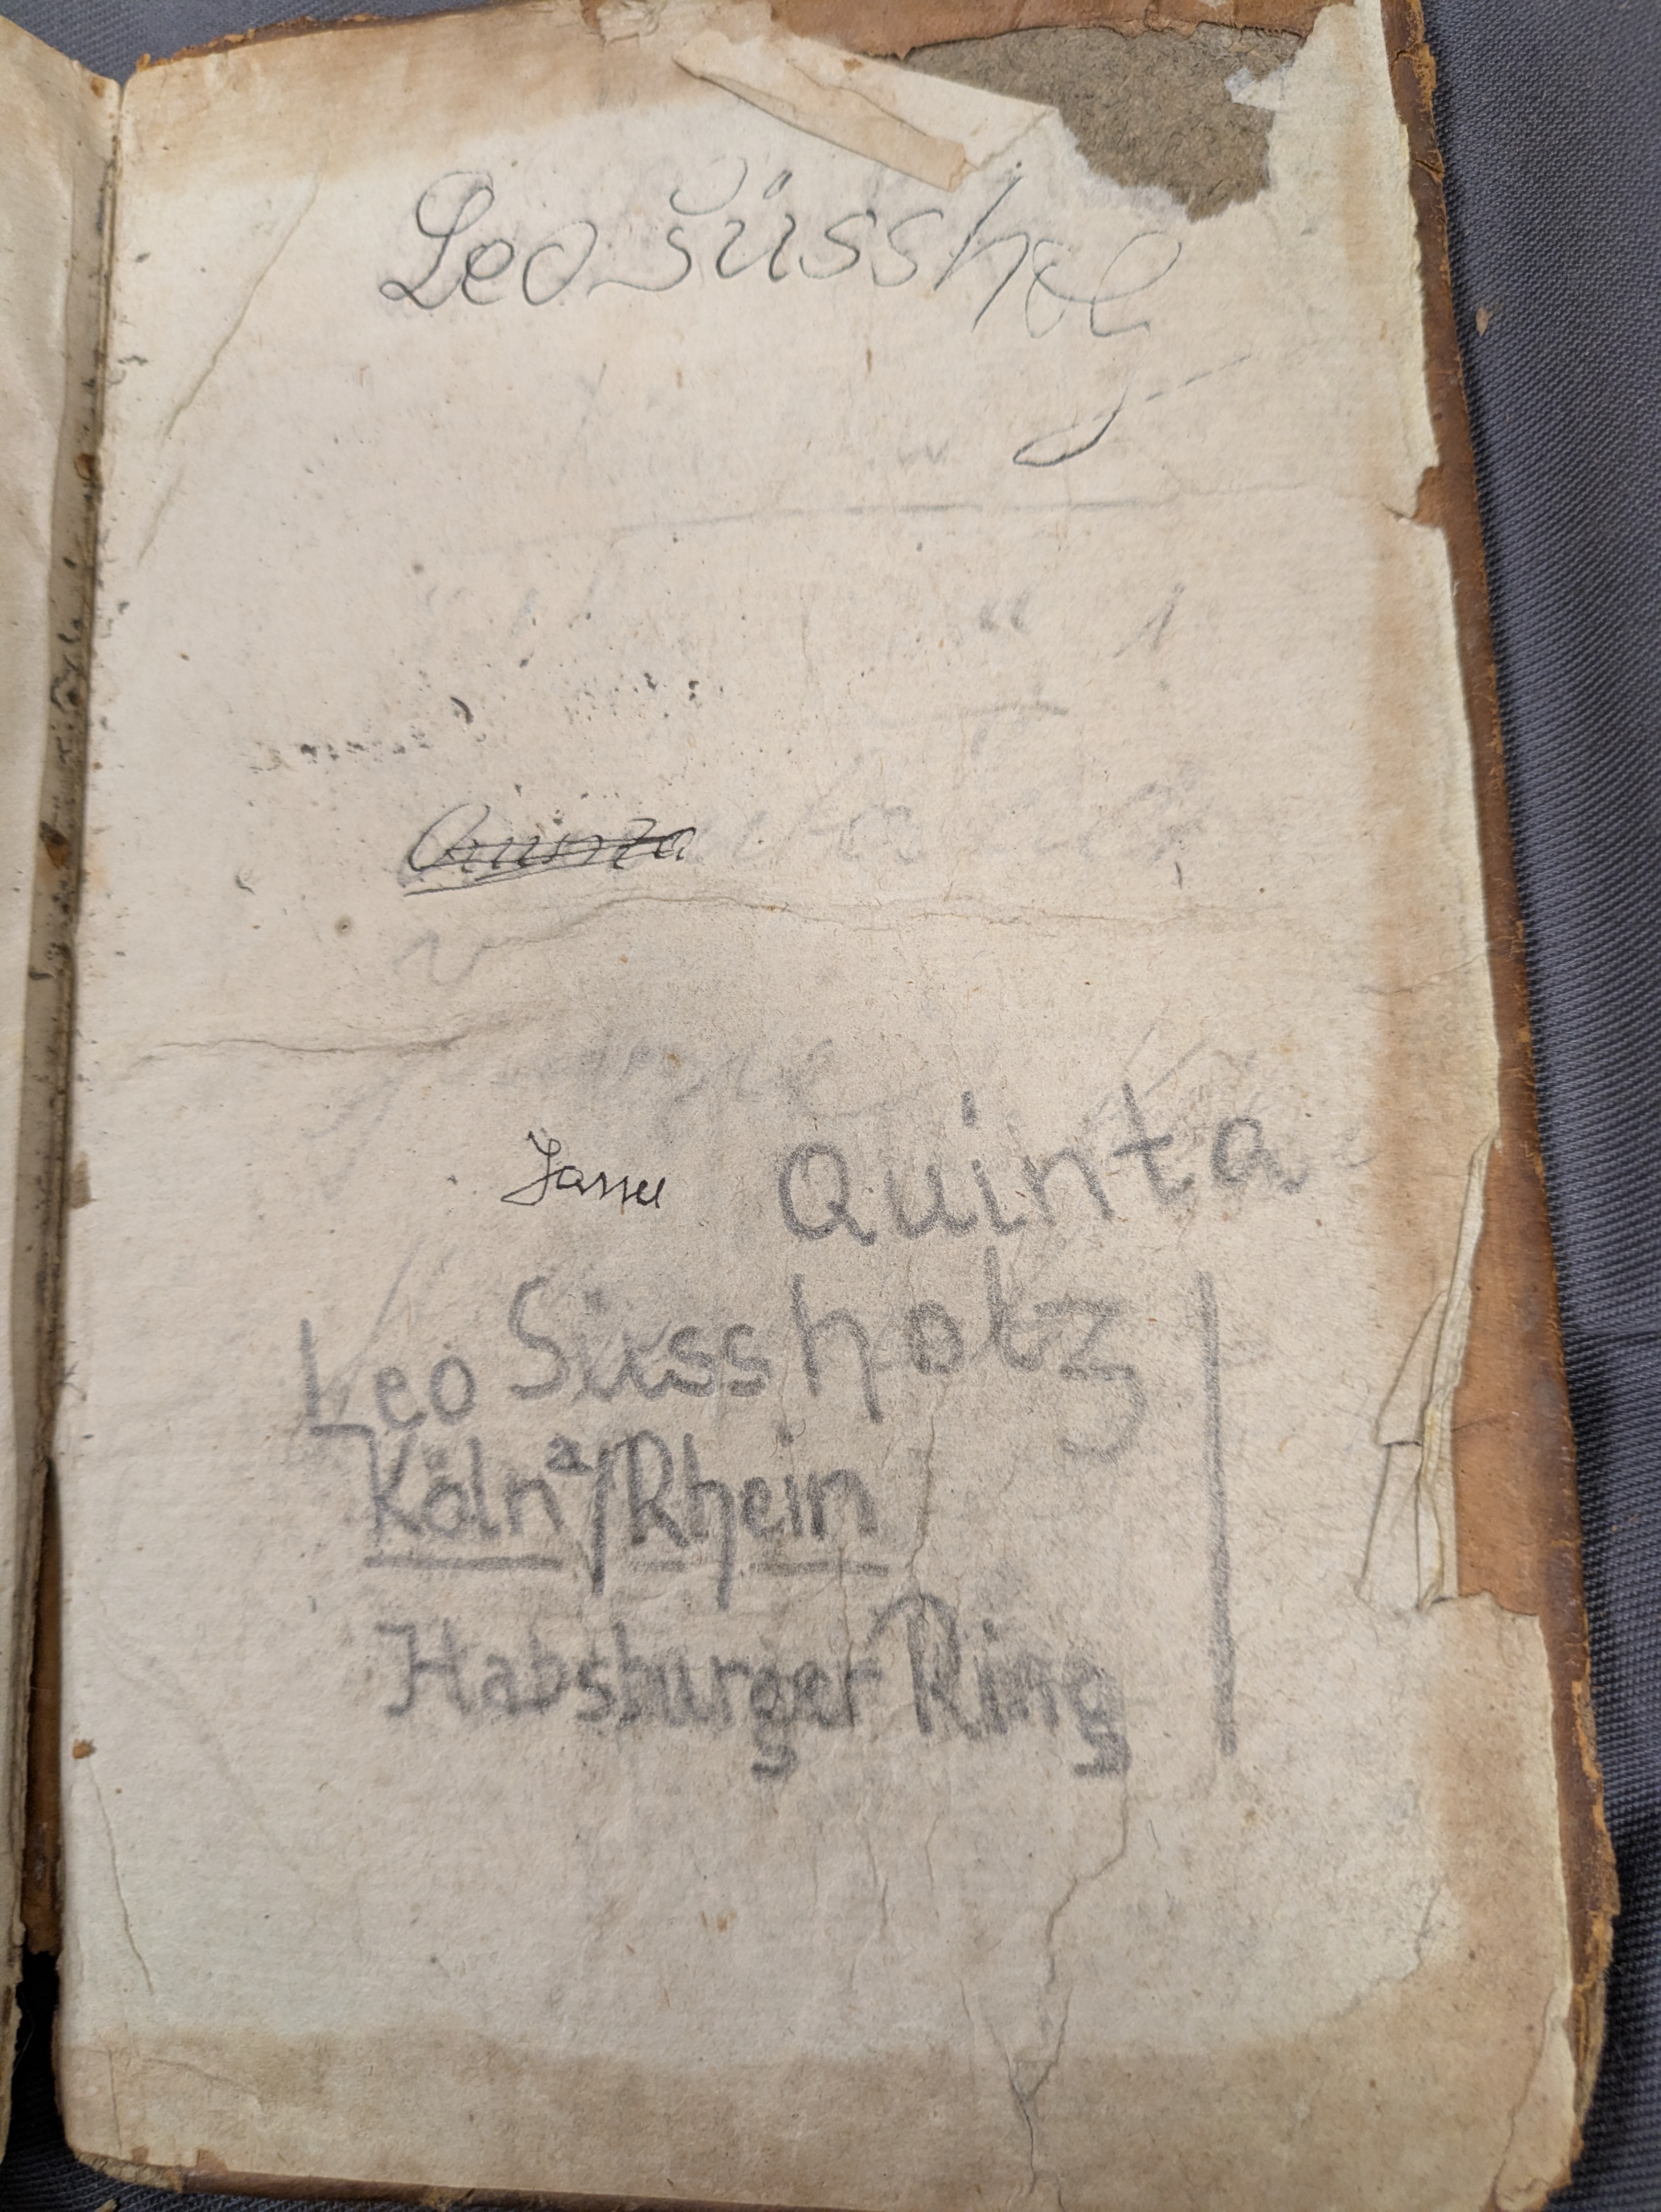 Leo Süssholz
Quinta
Quinta
Leo Süssholz
Köln a/Rhein
Habsburger Ring